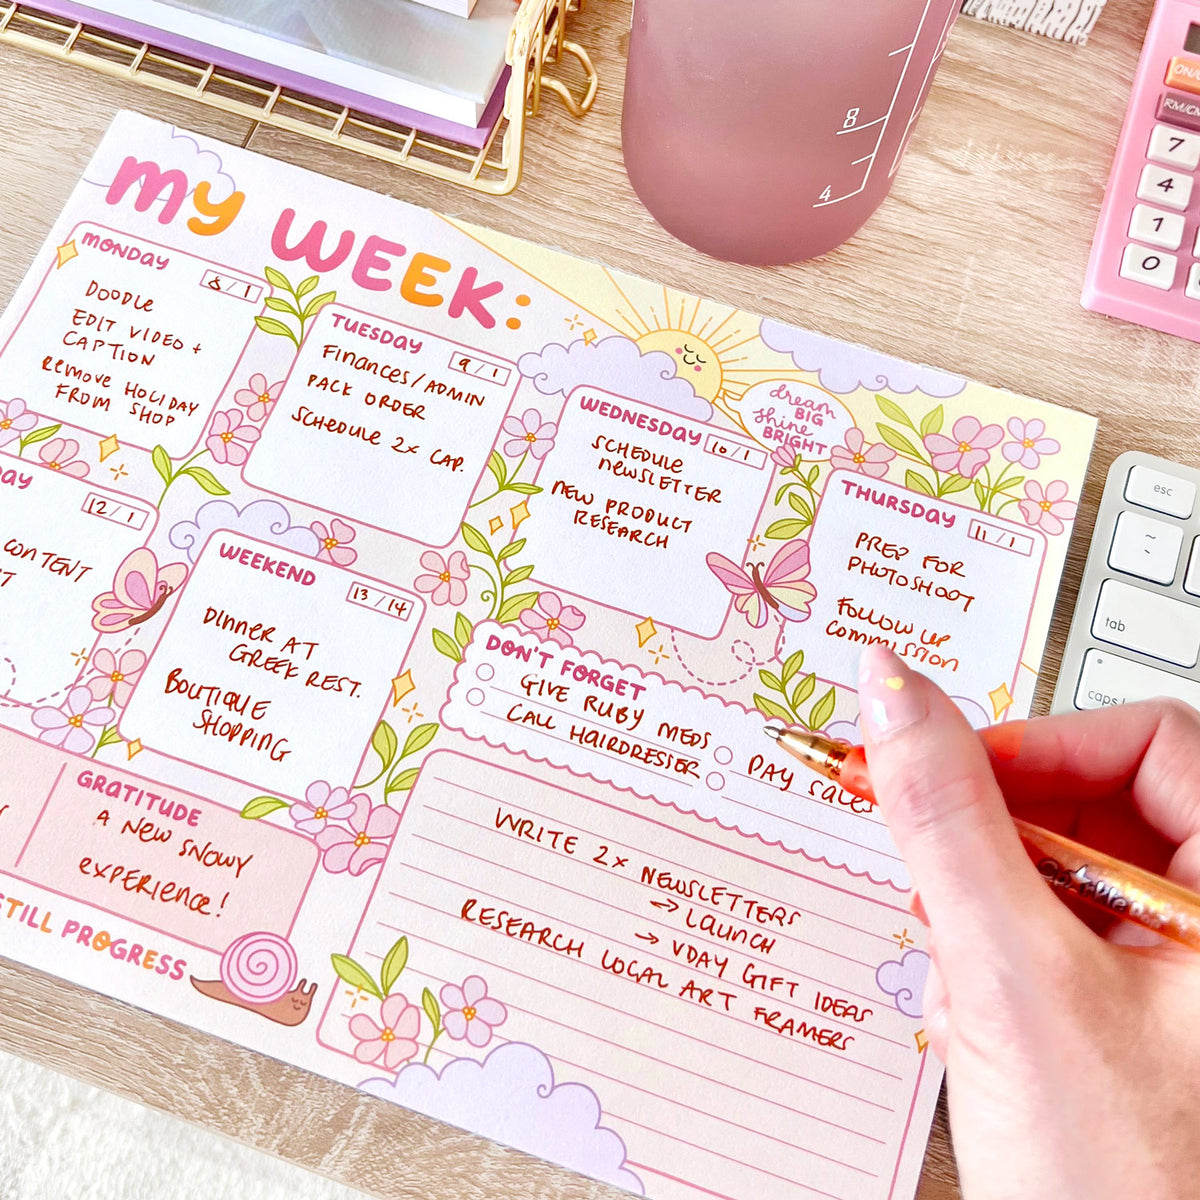 MY WEEK:
MONDAY
8/1
DOODLE
EDIT VIDEO +
CAPTION
REMOVE HOLIDAY
FROM SHOP
TUESDAY
9/1
FINANCES/ADMIN
PACK ORDER
SCHEDULE 2x CAP.
WEDNESDAY
10/1
SCHEDULE
NEWSLETTER
NEW PRODUCT
RESEARCH
dream
BIG
shine
BRIGHT
THURSDAY
11/1
PREP FOR
PHOTOSHOOT
FOLLOW UP
COMMISSION
12/1
CONTENT
WEEKEND
13/14
DINNER AT
GREEK REST.
BOUTIQUE
SHOPPING
DON'T FORGET
GIVE RUBY MEDS
CALL HAIRDRESSER
PAY SALES
GRATITUDE
A NEW SNOWY
EXPERIENCE!
STILL PROGRESS
WRITE 2x NEWSLETTERS
→ LAUNCH
→ VDAY GIFT IDEAS
RESEARCH LOCAL ART FRAMERS
8
4
7
4
1
0
esc
~
tab